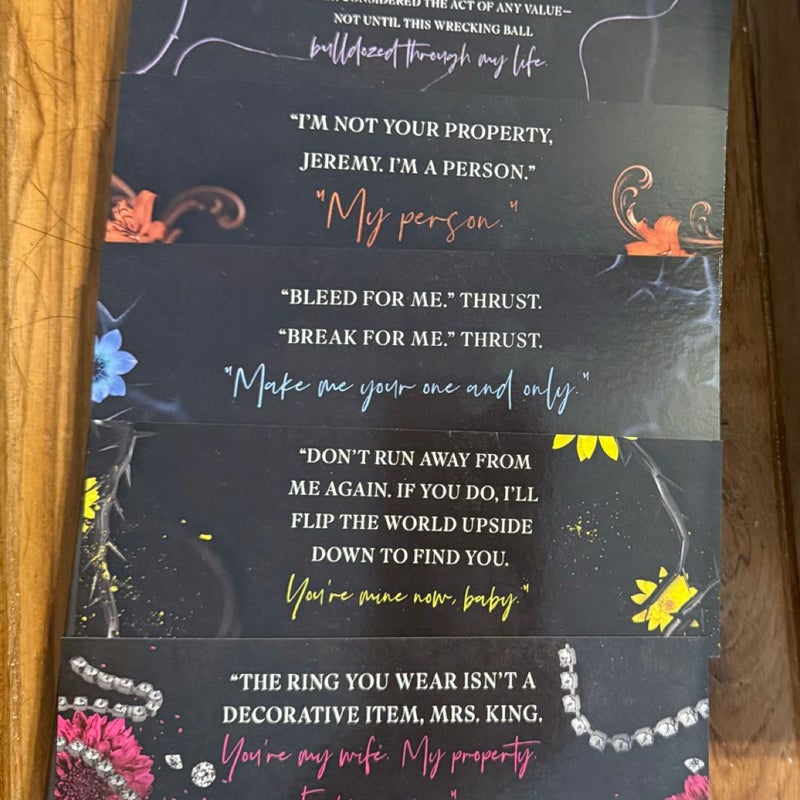 CONSIDERED THE ACT OF ANY VALUE—
NOT UNTIL THIS WRECKING BALL
bulldozed through my life.
“I’M NOT YOUR PROPERTY,
JEREMY. I’M A PERSON.”
"My person."
“BLEED FOR ME.” THRUST.
“BREAK FOR ME.” THRUST.
"Make me your one and only."
“DON’T RUN AWAY FROM
ME AGAIN. IF YOU DO, I’LL
FLIP THE WORLD UPSIDE
DOWN TO FIND YOU.
You're mine now, baby."
“THE RING YOU WEAR ISN’T A
DECORATIVE ITEM, MRS. KING.
You're my wife. My property.